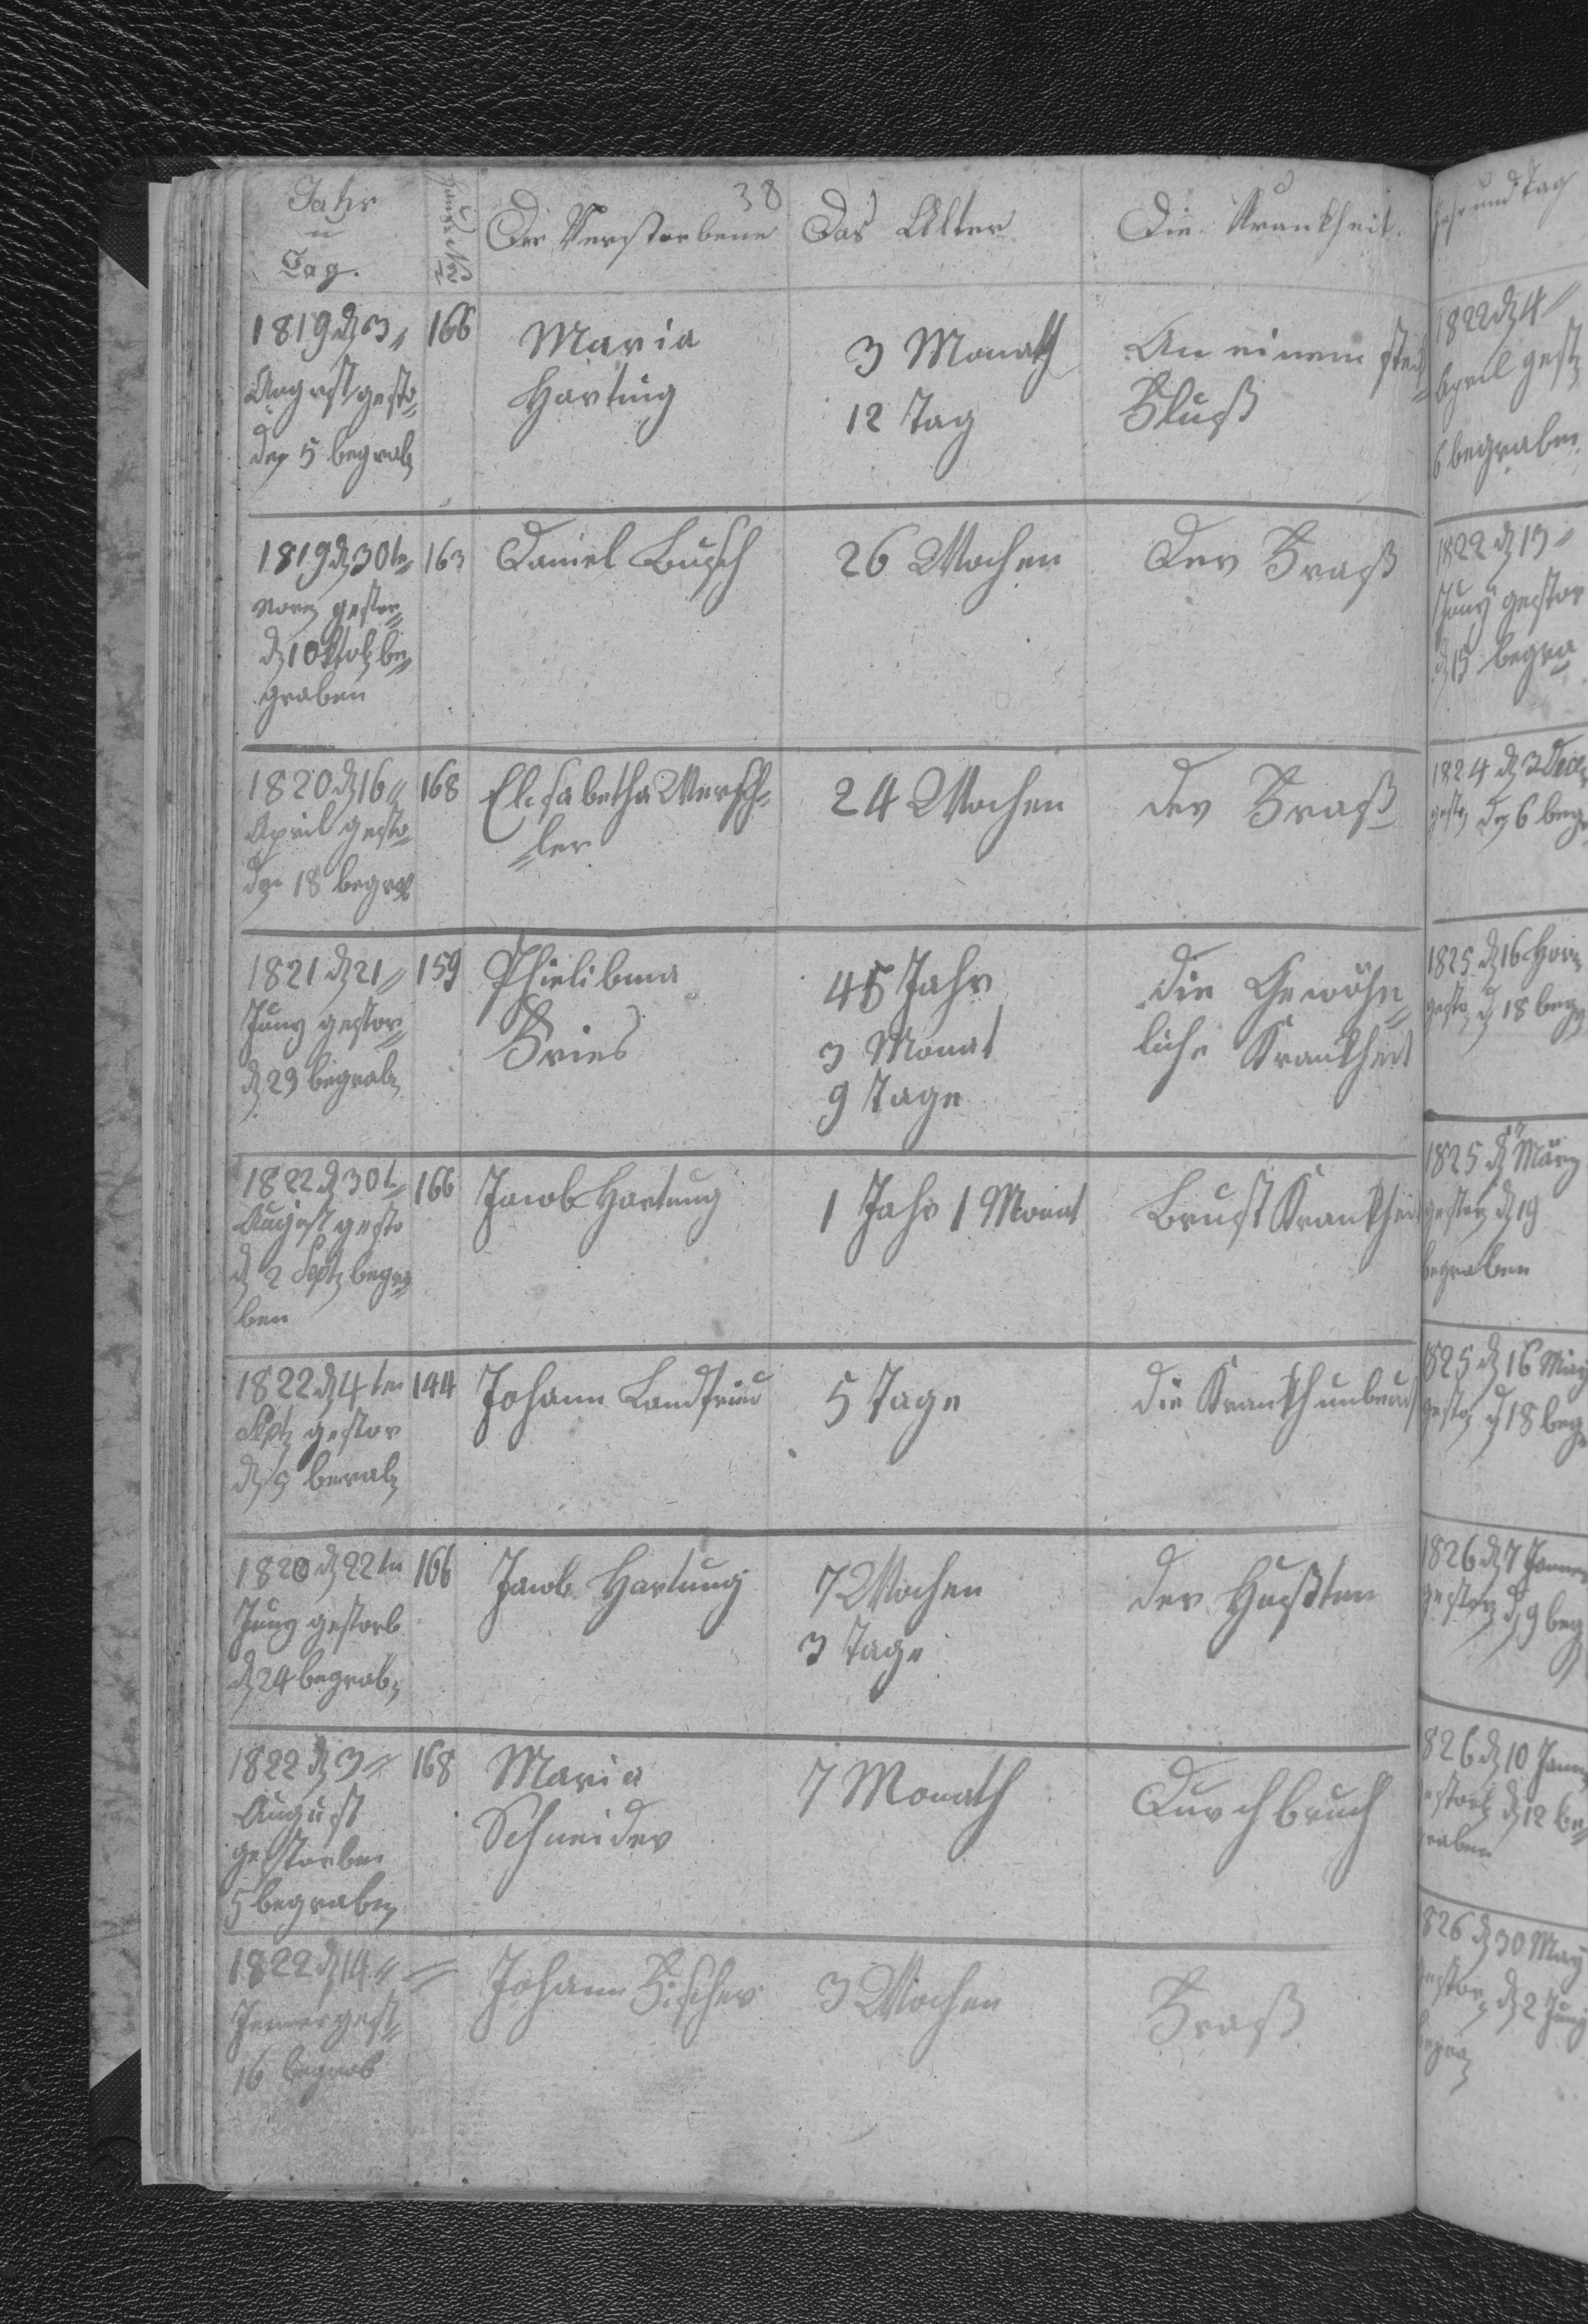 38
Jahr
u
Tag.
Hauß No
Der Verstorbene
Das Alter
Die Krankheit.
1819 d 3
August gesto
den 5 begrab
166
Maria
Hartung
3 Monath
12 Tag
An einem
Fluß
1819 d 30te
gestor
d 1 Oktob be
graben
163
Daniel Busch
26 Wochen
Der Fraß
1820 d 16
April gesto
den 18 begra
168
Elisabetha Wersch
ler
24 Wochen
der Fraß
1821 d 21
Juny gestor
d 23 begrab
159
Phielibena
Fries
45 Jahr
3 Monat
9 Tage
die Gewöhn
liche Krankheit
1822 d 30t
August gesto
d 2 Sept begra
ben
166
Jacob Hartung
1 Jahr 1 Monat
Brust Krankheit
1822 d 4ten
Sept gestor
d 5 berab
144
Johann Landfried
5 Tage
die Krankh unbewust
1820 d 22tn
Juny gestorb
d 24 begrab
166
Jacob Hartung
7 Wochen
3 Tage
der Hußten
1822 d 3
August
gestorben
5 begraben
168
Maria
Schneider
7 Monath
Durchbruch
1822 d 14
Jenner gest
16 begrab
Johann Fischer
3 Wochen
Fraß
Jahr und Tag
1822 d 4
April gest
6 begraben
1822 d 13
Juny gestor
d 15 begra
1824 d 3 Dec
gesto den 6 begr
1825 d 16 Horn
gesto d 18 beg
1825 d 17 März
gestor d 19
begraben
1825 d 16 May
gesto d 18 beg
1826 d 7 Janner
gestor d 9 beg
826 d 10 Janner
estorb d 12 be
raben
826 d 30 May
estor d 2 Juny
begra